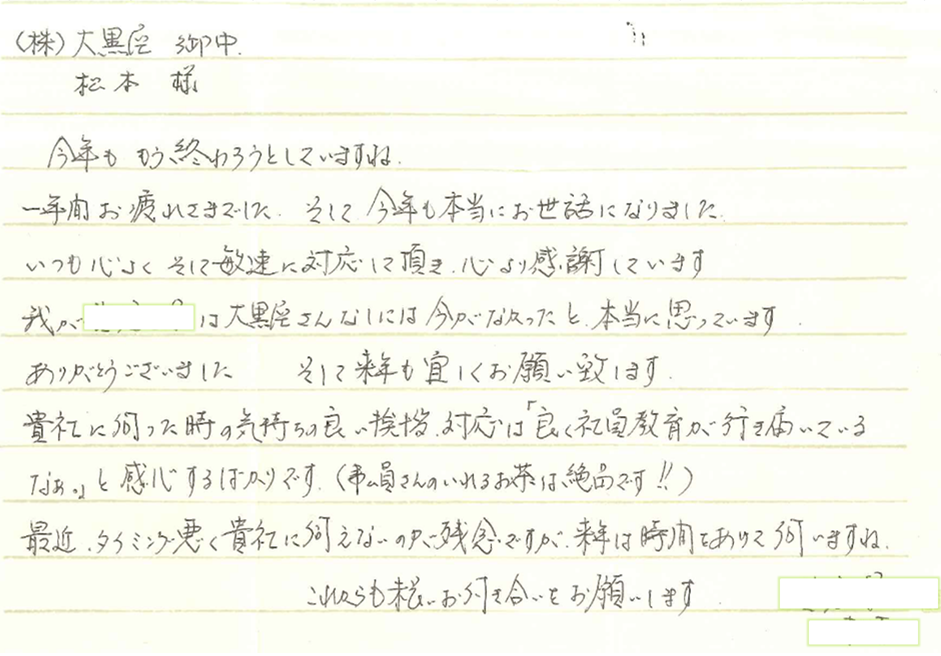 (株)大黒屋 御中.
松本 様
今年も もう終わろうとしていますね.
一年間お疲れさまでした. そして今年も本当にお世話になりました.
いつも心よく そして敏速に対応して頂き、心より感謝しています
我が は大黒屋さんなしには今がなかったと、本当に思っています.
ありがとうございました そして来年も宜しくお願い致します.
貴社に伺った時の気持ちの良い挨拶、対応は「良く社員教育が行き届いている
なぁ。」と感心するばかりです.(事ム員さんのいれるお茶は、絶品です!!)
最近、タイミング悪く貴社に伺えないのが残念ですが、来年は時間をみつけて伺いますね.
これからも末長いお付き合いをお願いします.